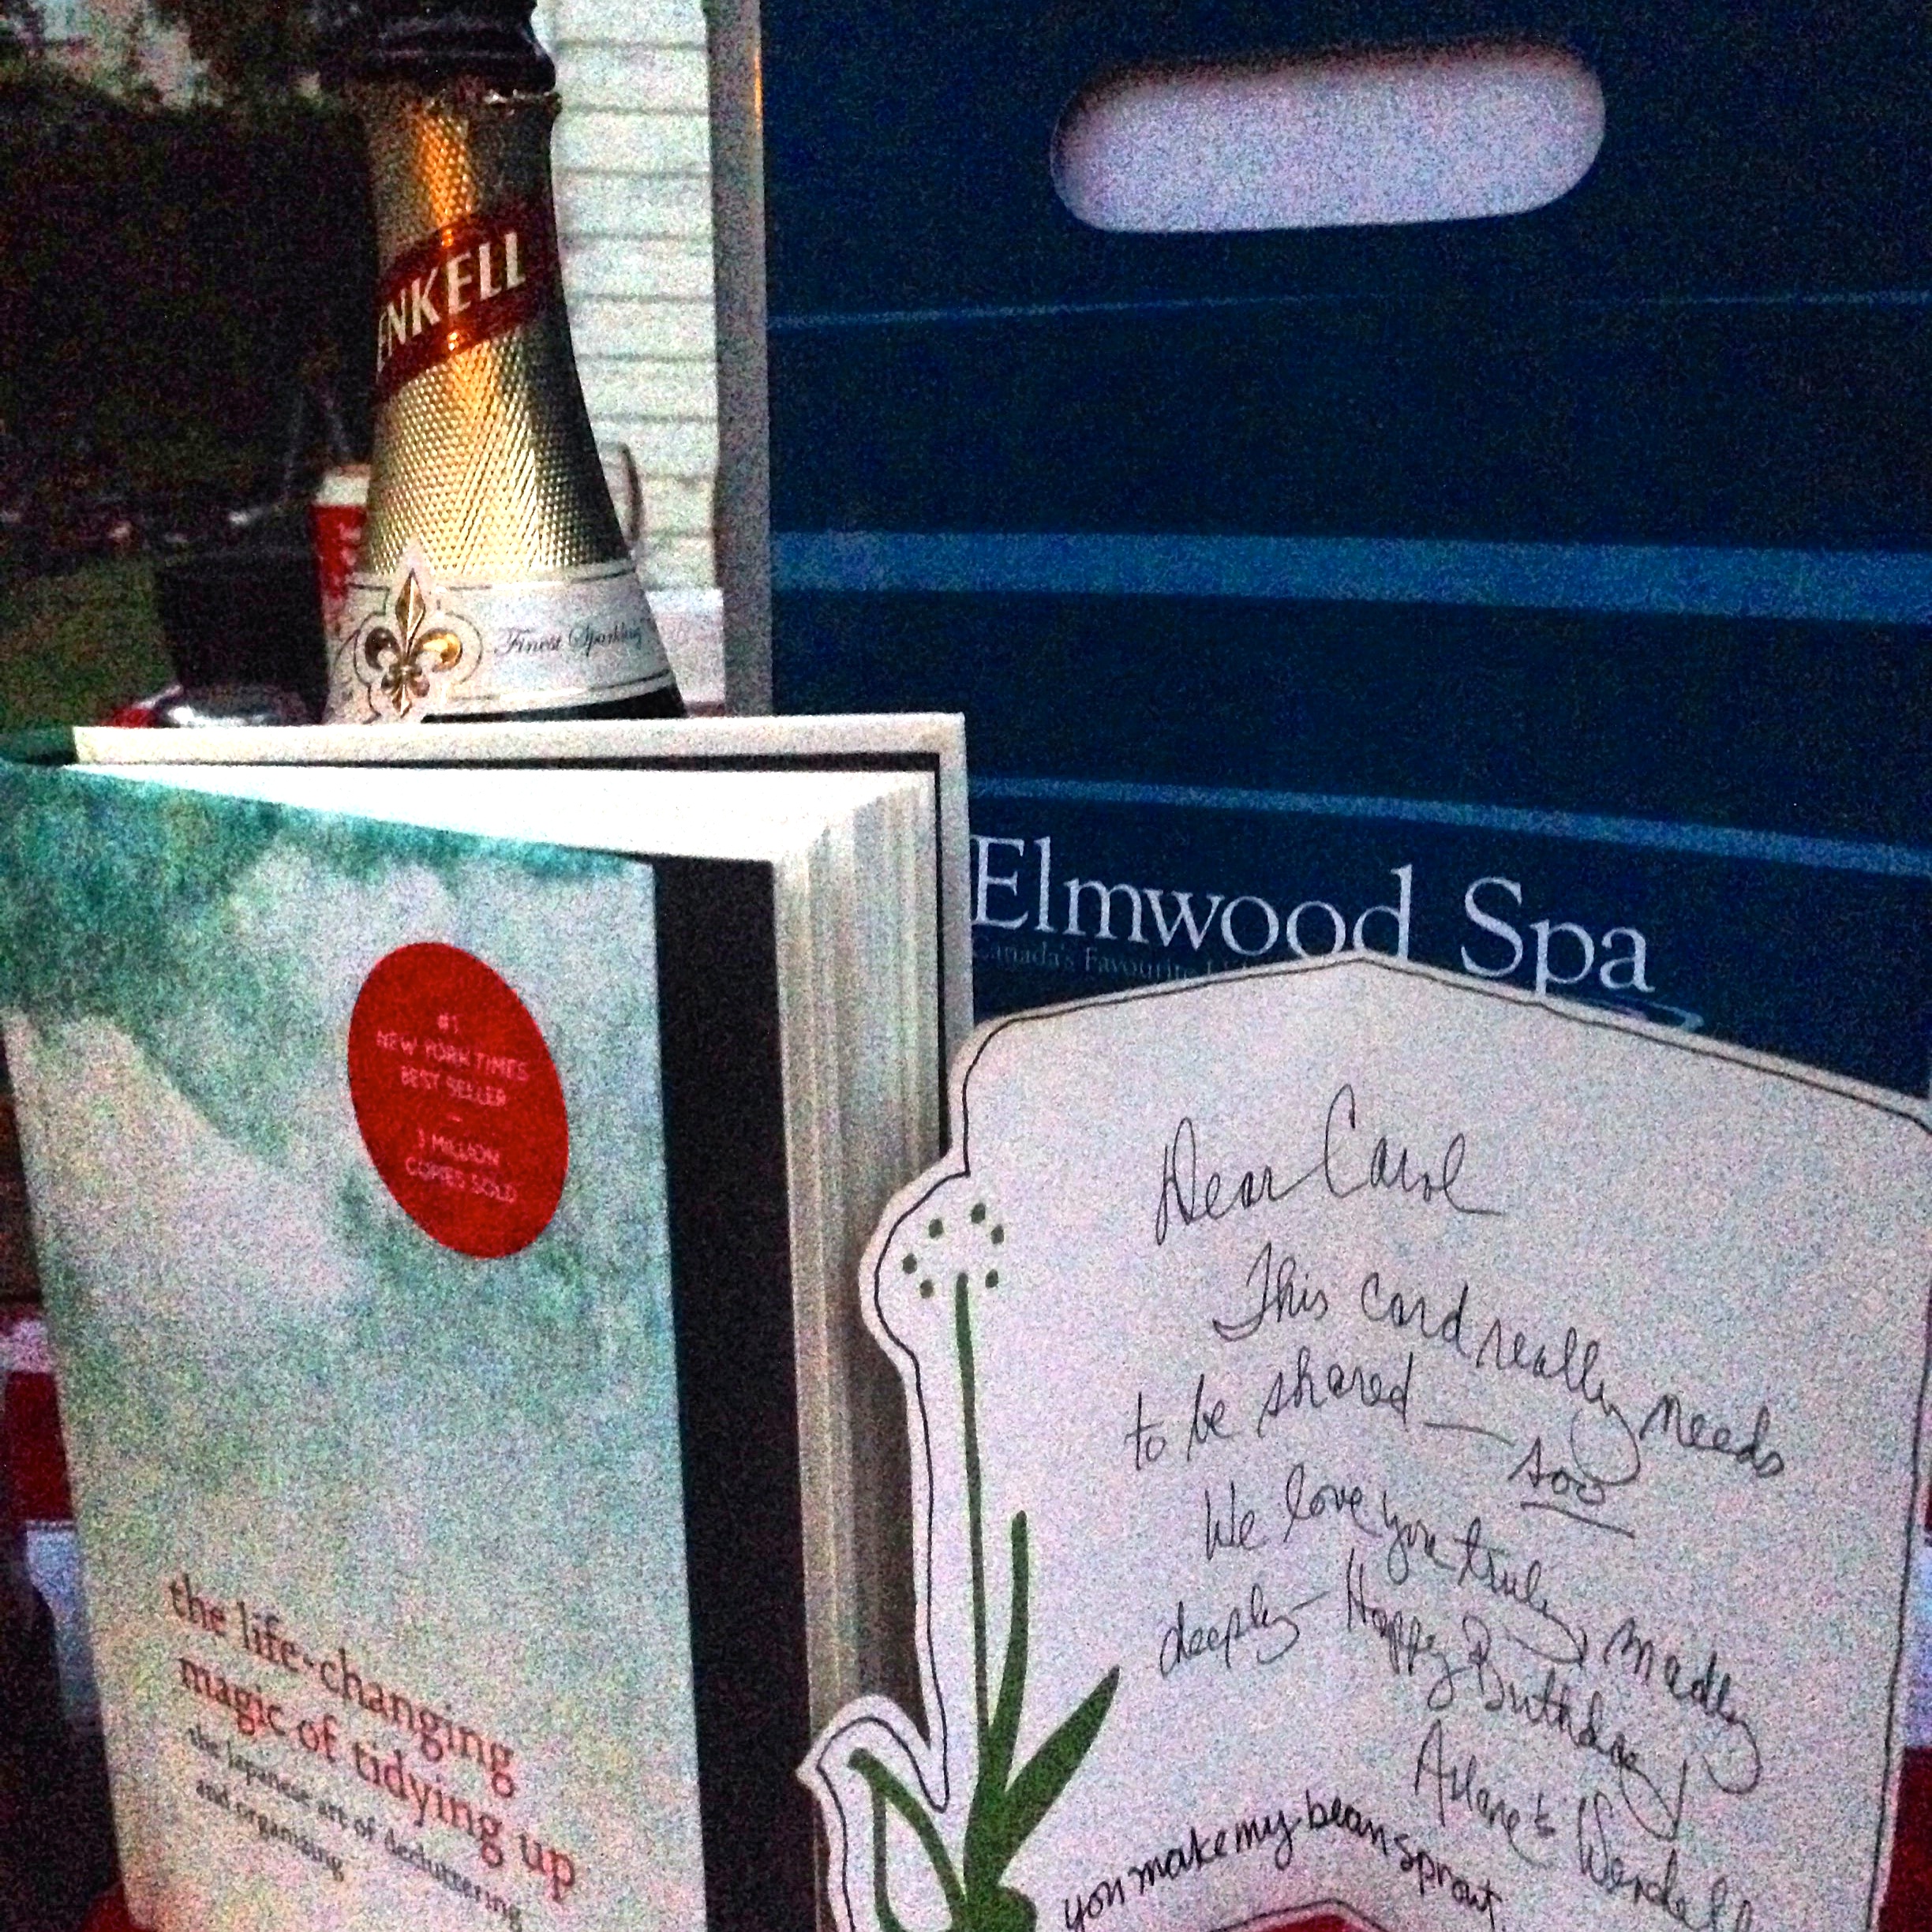 ENKELL
Finest Sparkling
Elmwood Spa
Canada's Favourite
#1
NEW YORK TIMES
BEST SELLER
3 MILLION
COPIES SOLD
the life-changing
magic of tidying up
the Japanese art of decluttering
and organising
Dear Carol
This card really needs
to be shared — soo
We love you truly, madly
deeply — Happy Birthday
& Wendell
you make my bean sprout